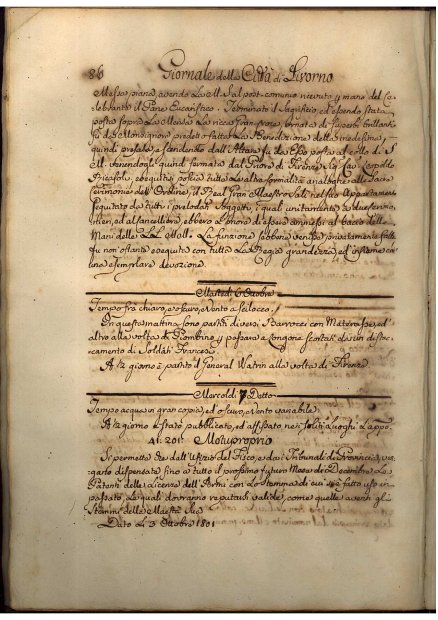 86 Giornale della Città di Livorno
Messa piana, avendo La M. S. al post-comunio ricevuto p mano del Ce
lebrante il Pane Eucaristico. Terminato il Sagrifizio, ed essendo stata
posta sopra La Mensa La ricca Gran-Croce, ornata di superbi brillanti
fù da Monsignore predetto fatta La Benedizione dell'
quindi presala, e scendendo dall'Altare fu da Esso posta al collo di S.
M. tenendogli quind. fermata dal Priore di Firenze Sig. Cav. Leopoldo
Ricasoli, eseguite poscia tutte Le altre formalità analoghe alle Sacre
Cerimonie dell'Ordine, il Real Gran Maestro salì nel suo Appartamento
seguitato da tutti i prelodati Soggetti, i quali unitamente a due
ed al Cancelliere, ebbero L'onore di essere ammessi al bacio delle
Mani delle LL. MM. La funzione, sebbene venisse privatamente fatta
fu non ostante eseguita con tutta La Regia grandezza, ed insieme con
una esemplare devozione.
Martedì 6 Ottobre
Tempo fra chiaro, e oscuro, e vento a scilocco.
In questa mattina sono partiti diversi Barrocci con Materasse, ed
altro alla volta di Piombino, e passano a Longone scortati da un distac-
camento di Soldati Francesi.
A 1/2 giorno è partito il General Watrin alla volta di Firenze
Mercoledì 7 Detto
Tempo acqua in gran copia, ed oscuro, e vento variabile.
A 1/2 giorno è stato pubblicato, ed affissato nei soliti Luoghi L'appo.
41. 201. Motuproprio
Si permette che dall'Ufizio del Fisco, e dai Tribunali di Provincia, ven
gano dispensate fino a tutto il prossimo futuro Mese di Decembre Le
Patenti delle Licenze dell'Armi con Lo stemma di cui si è fatto uso in
passato, Le quali dovranno reputarsi valide, come quelle aventi gli
Stemmi delle Maestà Sue
Dato Li 3 Ottobre 1801